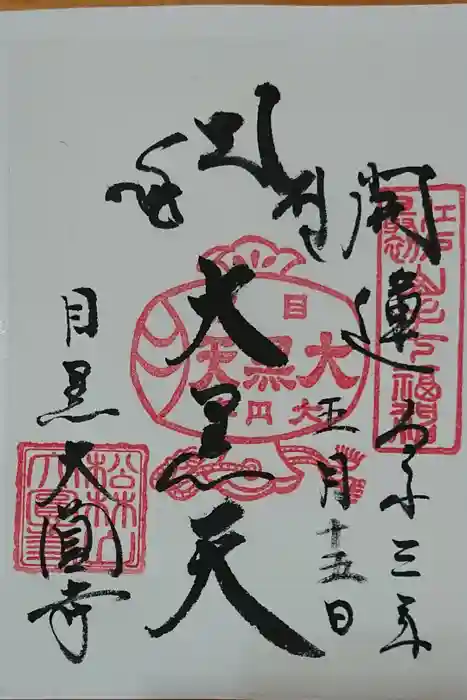 開運 令和三年
江戸最初山手七福神
五月十五日
大黒天
大黒天
目黒大圓寺
松林山大圓寺